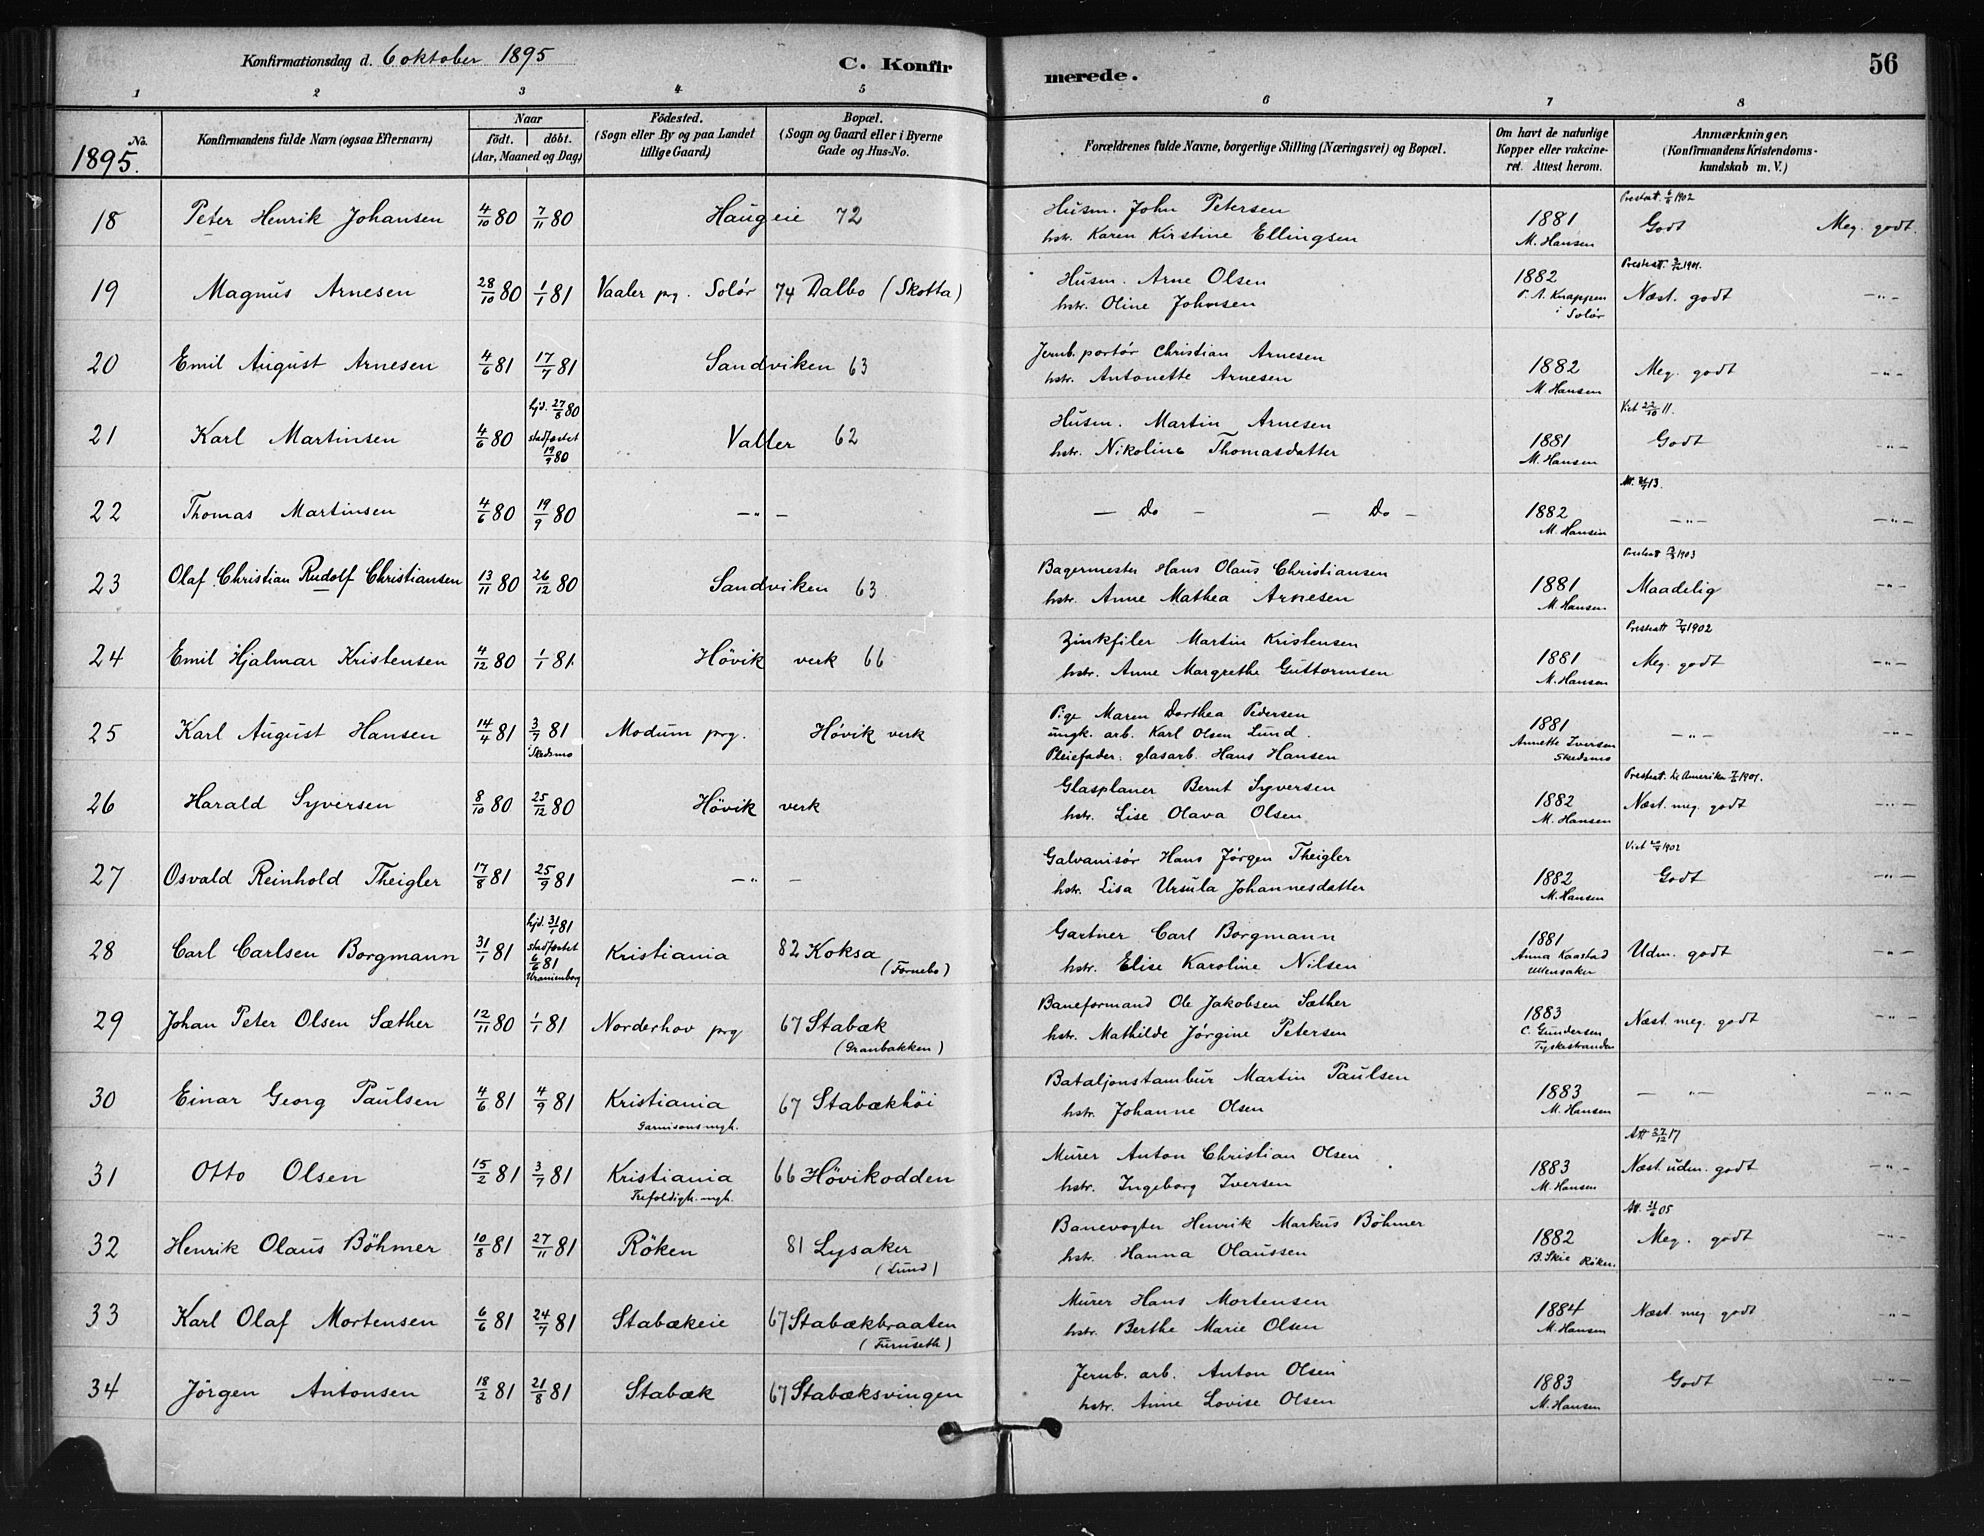 Konfirmationsdag d. 6 oktober 1895
C. Konfir
merede.
56
1 2 3 4 5 6 7 8
No.
1895.
Konfirmandens fulde Navn (ogsaa Efternavn)
Naar
födt. döbt.
(Aar, Maaned og Dag)
Födested.
(Sogn eller By og paa Landet
tillige Gaard)
Bopæl.
(Sogn og Gaard eller i Byerne
Gade og Hus-No.
Forældrenes fulde Navne, borgerlige Stilling (Næringsvei) og Bopæl.
Om havt de naturlige
Kopper eller vakcine-
ret. Attest herom.
Anmærkninger.
(Konfirmandens Kristendoms-
kundskab m. V.)
18 Peter Henrik Johansen 4/10 80 7/11 80 Haugeie 72 Husm. John Petersen
hstr. Karen Kirstine Ellingsen 1881
M. Hansen Prestatt. 1902
Godt Meg. godt.
19 Magnus Arnesen 28/10 80 1/1 81 Vaaler prg. Solör 74 Dalbo (Skotta) Husm. Arne Olsen
hstr. Oline Johnsen 1882
Knappen
i Solör Prestatt. 1901.
Næst. godt -"-
20 Emil August Arnesen 4/6 81 17/7 81 Sandviken 63 Jernb. portör Christian Arnesen
hstr. Antonette Arnesen 1882
M. Hansen Meg. godt -"-
21 Karl Martinsen 4/6 80 hjd. 27/8 80
stadfæstet
19/9 80 Valler 62 Husm. Martin Arnesen
hstr. Nikoline Thomasdatter 1881
M. Hansen 22/10 11.
Godt -"-
22 Thomas Martinsen 4/6 80 19/9 80 -"- - Do - - Do - 1882
M. Hansen 13.
-"- -"-
23 Olaf Christian Rudolf Christiansen 13/11 80 26/12 80 Sandviken 63 Bagermester Hans Olaus Christiansen
hstr. Anne Mathea Arnesen 1881
M. Hansen 1903
Maadelig -"-
24 Emil Hjalmar Kristensen 4/12 80 1/1 81 Hövik verk 66 Zinkfiler Martin Kristensen
hstr. Anne Margrethe Guttormsen 1881
M. Hansen Prestatt 1902
Meg. godt -"-
25 Karl August Hansen 14/4 81 3/7 81
i Skedsmo Modum prg. Hövik verk Pige Maren Dorthea Pedersen
ungk. arb. Karl Olsen Lund.
Pleiefader: glasarb. Hans Hansen 1881
Annette Iversen
Skedsmo -"- -"-
26 Harald Syversen 8/10 80 25/12 80 Hövik verk Glasplaner Bernt Syversen
hstr. Lise Olava Olsen 1882
M. Hansen Prestatt. til Amerika 1901.
Næst. meg. godt -"-
27 Osvald Reinhold Theigler 17/8 81 25/9 81 -"- - Galvanisör Hans Jörgen Theigler
hstr. Lisa Ursula Johannesdatter 1882
M. Hansen 1902
Godt -"-
28 Carl Carlsen Borgmann 31/1 81 hjd. 31/1 81
stadfæstet
6/6 81
Uranienborg Kristiania 82 Koksa
(Fornebo) Gartner Carl Borgmann
hstr. Elise Karoline Nilsen 1881
Anna Kaastad
Ullensaker Udm. godt -"-
29 Johan Peter Olsen Sæther 12/11 80 1/1 81 Norderhov prg 67 Stabæk
(Granbakken) Baneformand Ole Jakobsen Sæther
hstr. Mathilde Jörgine Petersen 1883
C. Gundersen
Tyskestranden Næst. meg. godt -"-
30 Einar Georg Paulsen 4/6 81 4/9 81 Kristiania
Garnisonsmgh. 67 Stabækhöi Bataljonstambur Martin Paulsen
hstr. Johanne Olsen 1883
M. Hansen - "- -"-
31 Otto Olsen 15/2 81 3/7 81 Kristiania
Trefoldigh. mgh. 66 Hövikodden Murer Anton Christian Olsen
hstr. Ingeborg Iversen 1883
M. Hansen Att 27/12 17
Næst. udm. godt -"-
32 Henrik Olaus Böhmer 10/8 81 27/11 81 Röken 81 Lysaker
(Lund) Banevogter Henrik Markus Böhmer
hstr. Hanna Olaussen 1882
B. Skie Röken. Att. 05
Meg. godt -"-
33 Karl Olaf Mortensen 6/6 81 24/7 81 Stabækeie 67 Stabækbraaten
(Furuseth) Murer Hans Mortensen
hstr. Berthe Marie Olsen 1884
M. Hansen Næst meg godt -"-
34 Jörgen Antonsen 18/2 81 21/8 81 Stabæk 67 Stabæksvingen Jernb. arb. Anton Olsen
hstr. Anne Lovise Olsen 1883
M. Hansen Godt -"-